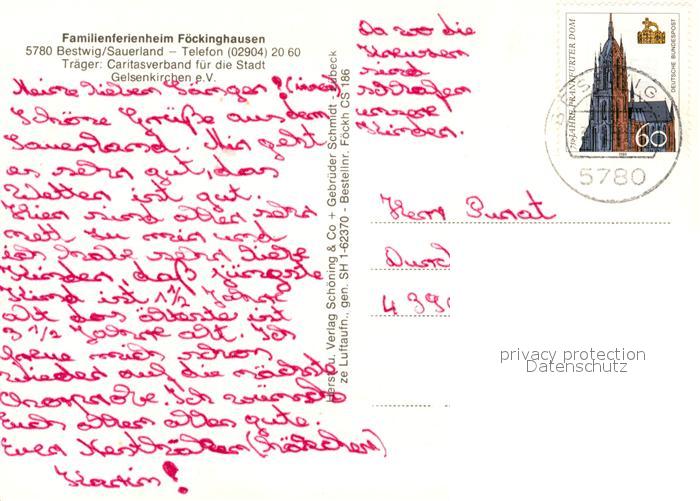 Familienferienheim Föckinghausen
5780 Bestwig/Sauerland – Telefon (02904) 20 60
Träger: Caritasverband für die Stadt
Gelsenkirchen e.V.
Meine lieben Sänger!
Schöne Grüße aus dem
Sauerland. Mir geht
es sehr gut, das
Wetter ist gut.
Hier sind allen sehr
nett zu mir und
ich habe sehr liebe
Kinder daß jüngste
Kind ist 1 1/2 Jahre
alt das älteste ist
3 1/2 Jahre alt. Ich
freue mich schon
wieder auf die nächste
Chorprobe. Ich wünsche
Euch allen alles gute.
Euer
Karin!
Da wo die
sind
schlafen
unsere
Kinder.
Herst. u. Verlag Schöning & Co + Gebrüder Schmidt - Lübeck
ze Luftaufn., gen. SH 1-62370 - Bestellnr. Föckh CS 186
750 JAHRE FRANKFURTER DOM
DEUTSCHE BUNDESPOST
60
BESTWIG
5780
Herr
4390
privacy protection
Datenschutz